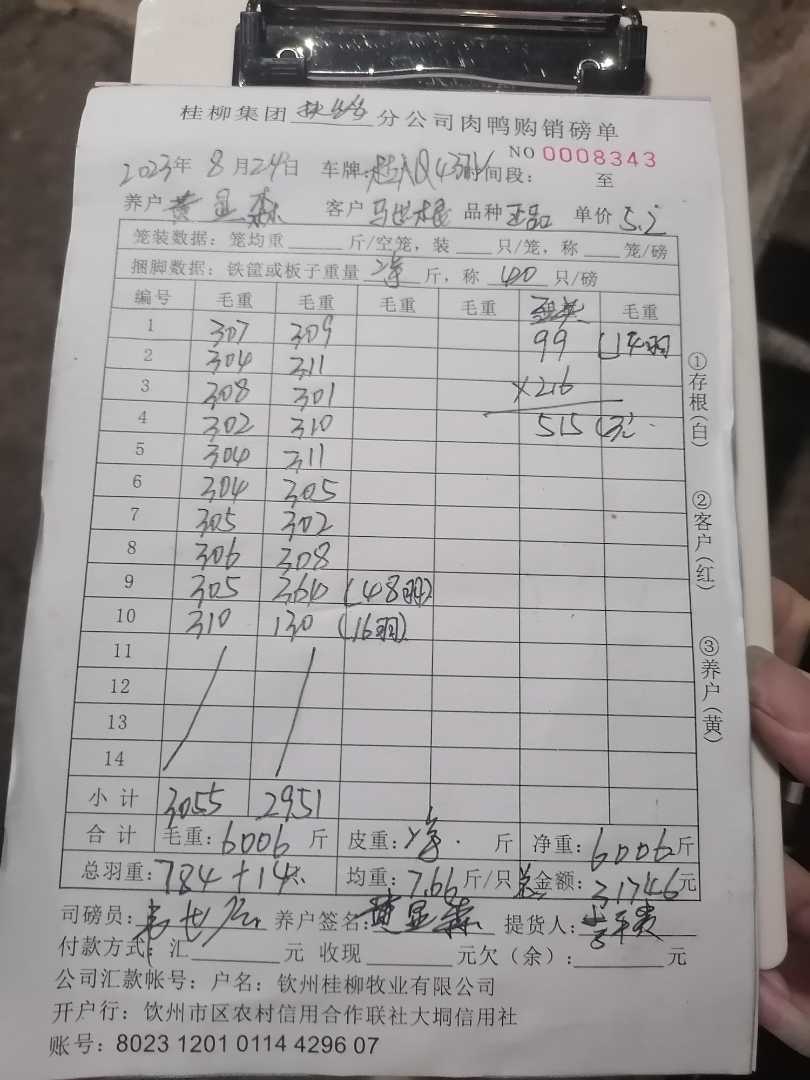 桂柳集团 分公司肉鸭购销磅单
NO 0008343
2023年 8月24日 车牌: 时间段: 至
养户 黄显森 客户 马世根 品种 正品 单价 5.2
笼装数据：笼均重 斤/空笼，装 只/笼，称 笼/磅
捆脚数据：铁筐或板子重量 净 斤，称 40 只/磅
编号 毛重 毛重 毛重 毛重 毛重
1 307 309 99 (14羽)
2 304 311
3 308 301 ×2.6
4 302 310 515 (元)
5 304 311
6 304 305
7 305 302
8 306 308
9 305 364 (48羽)
10 310 130 (16羽)
11
12
13
14
小计 3055 2951
合计 毛重: 6006 斤 皮重: 净 斤 净重: 6006 斤
总羽重: 784+14 均重: 7.66 斤/只 总金额: 31746 元
司磅员: 养户签名: 黄显森 提货人:
付款方式: 汇 元 收现 元欠（余）: 元
公司汇款帐号：户名：钦州桂柳牧业有限公司
开户行：钦州市区农村信用合作联社大垌信用社
账号：8023 1201 0114 4296 07
①存根(白)
②客户(红)
③养户(黄)